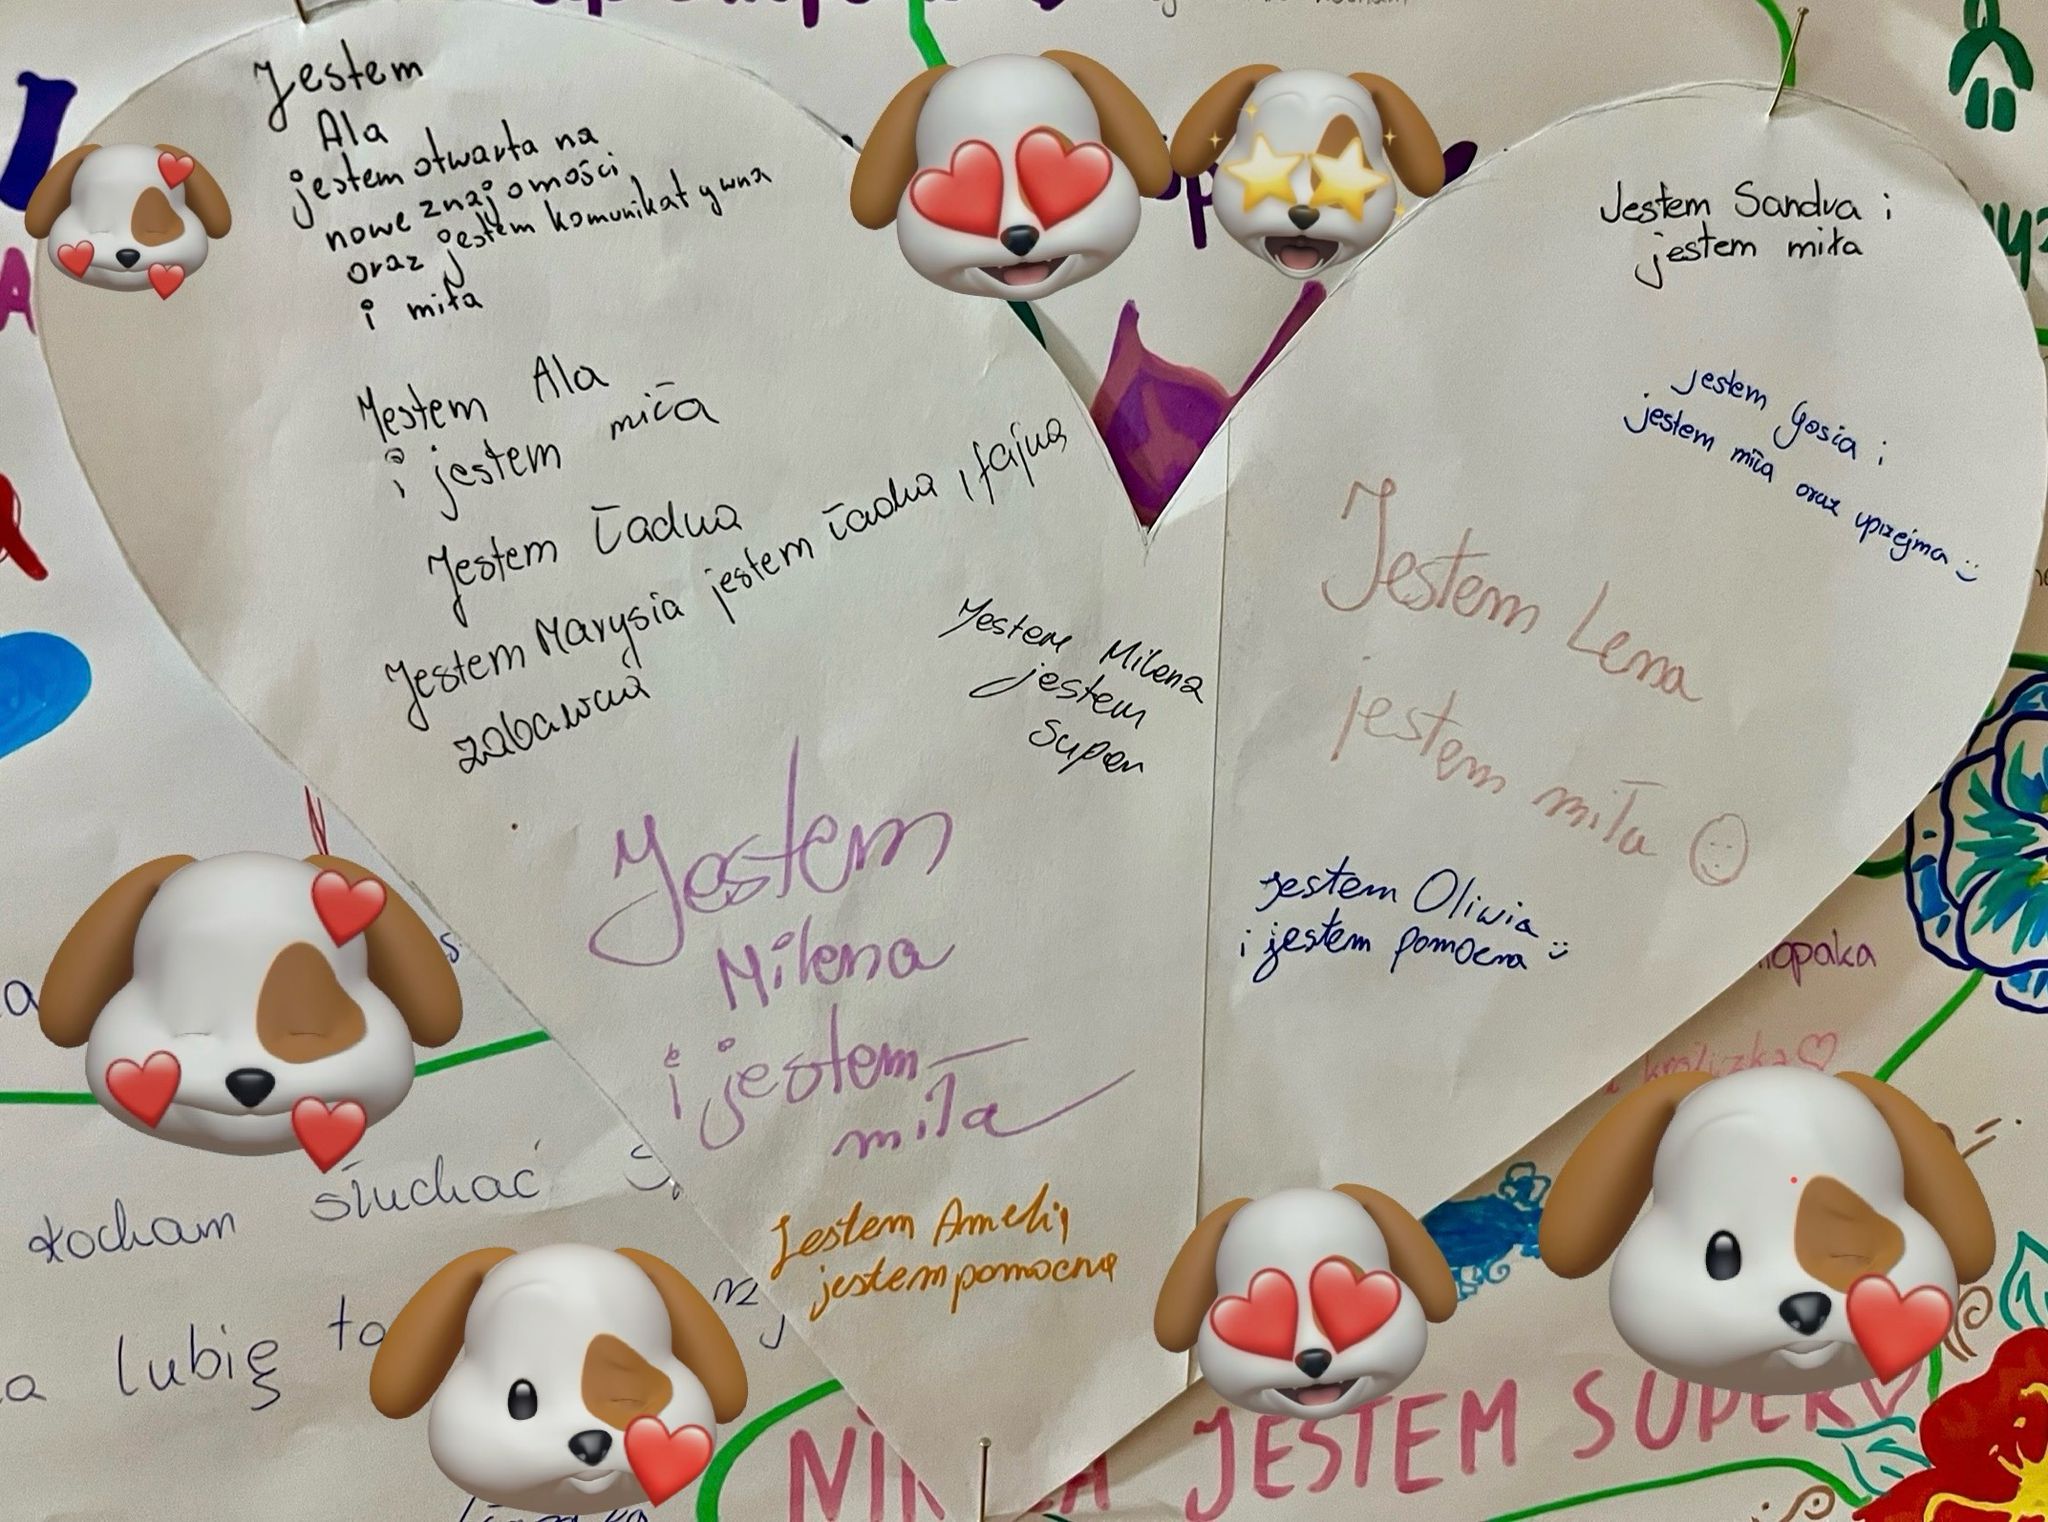 Jestem
Ala
jestem otwarta na
nowe znajomości
oraz jestem komunikatywna
i miła
Jestem Ala
i jestem miła
Jestem ładna
Jestem Marysia jestem ładna, fajna
zabawna
Jestem Milena
jestem
super
Jestem
Milena
i jestem
miła
Jestem Amelią
jestem pomocna
Jestem Sandra i
jestem miła
jestem Gosia i
jestem miła oraz uprzejma
Jestem Lena
jestem miła
jestem Oliwia
i jestem pomocna
kocham słuchać
lubię to
JESTEM SUPER